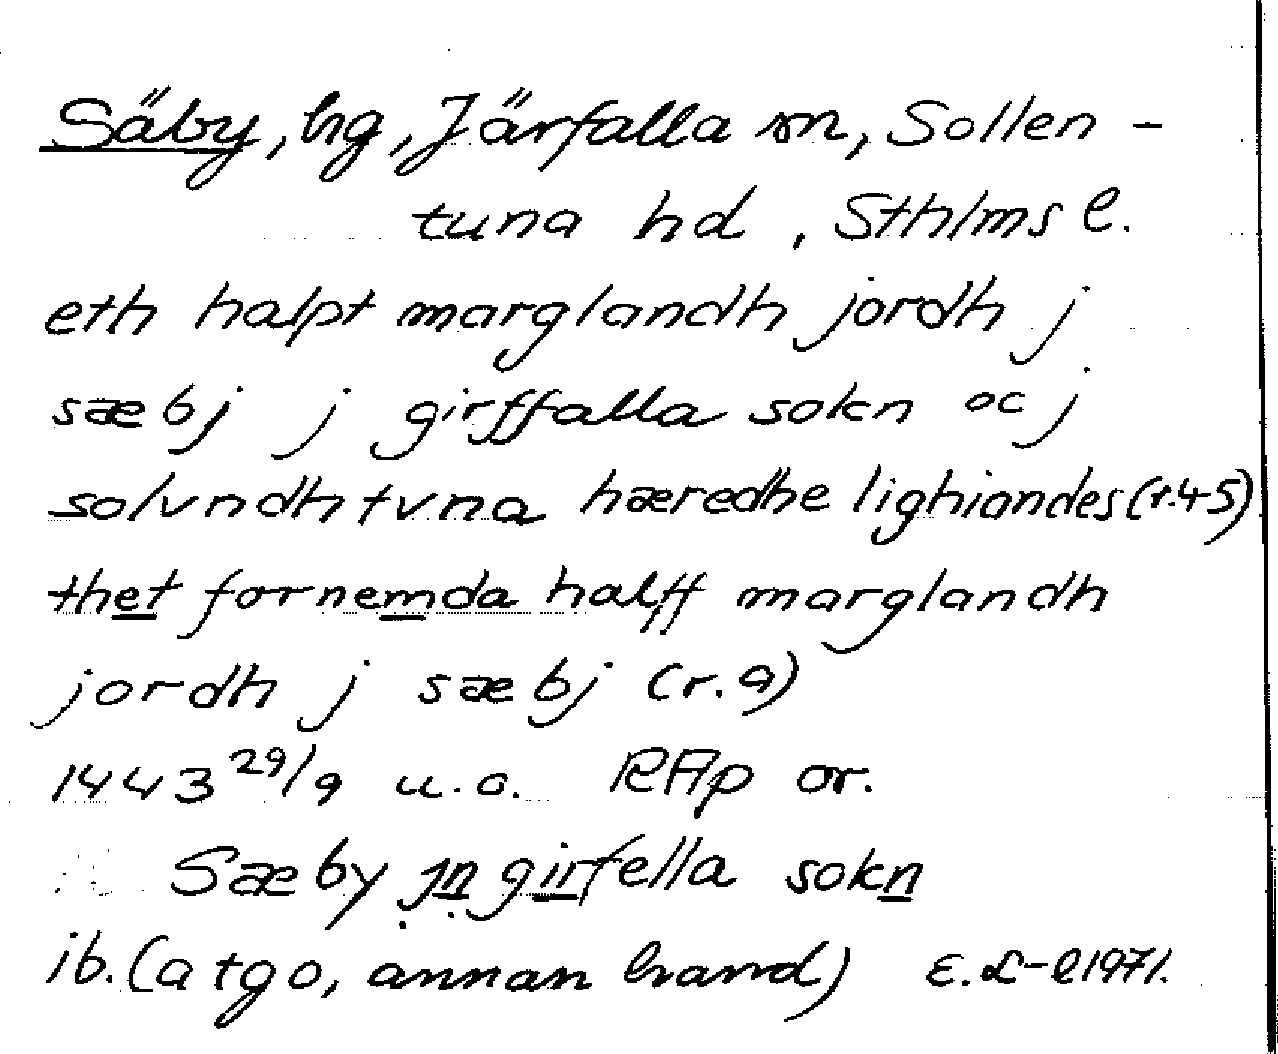 Säby, hg, Järfalla sn, Sollen-
tuna hd, Sthlms l.
eth halpt marglandh jordh j
sæbj j girffalla sokn oc j
solvndhtvna hæredhe lighiandes (r.4-5)
thet fornemda halff marglandh
jordh j sæbj (r.9)
1443 29/9 u.o. RAp or.
Sæby jn girfella sokn
ib. (a tgo, annan hand) E.L-l 1971.